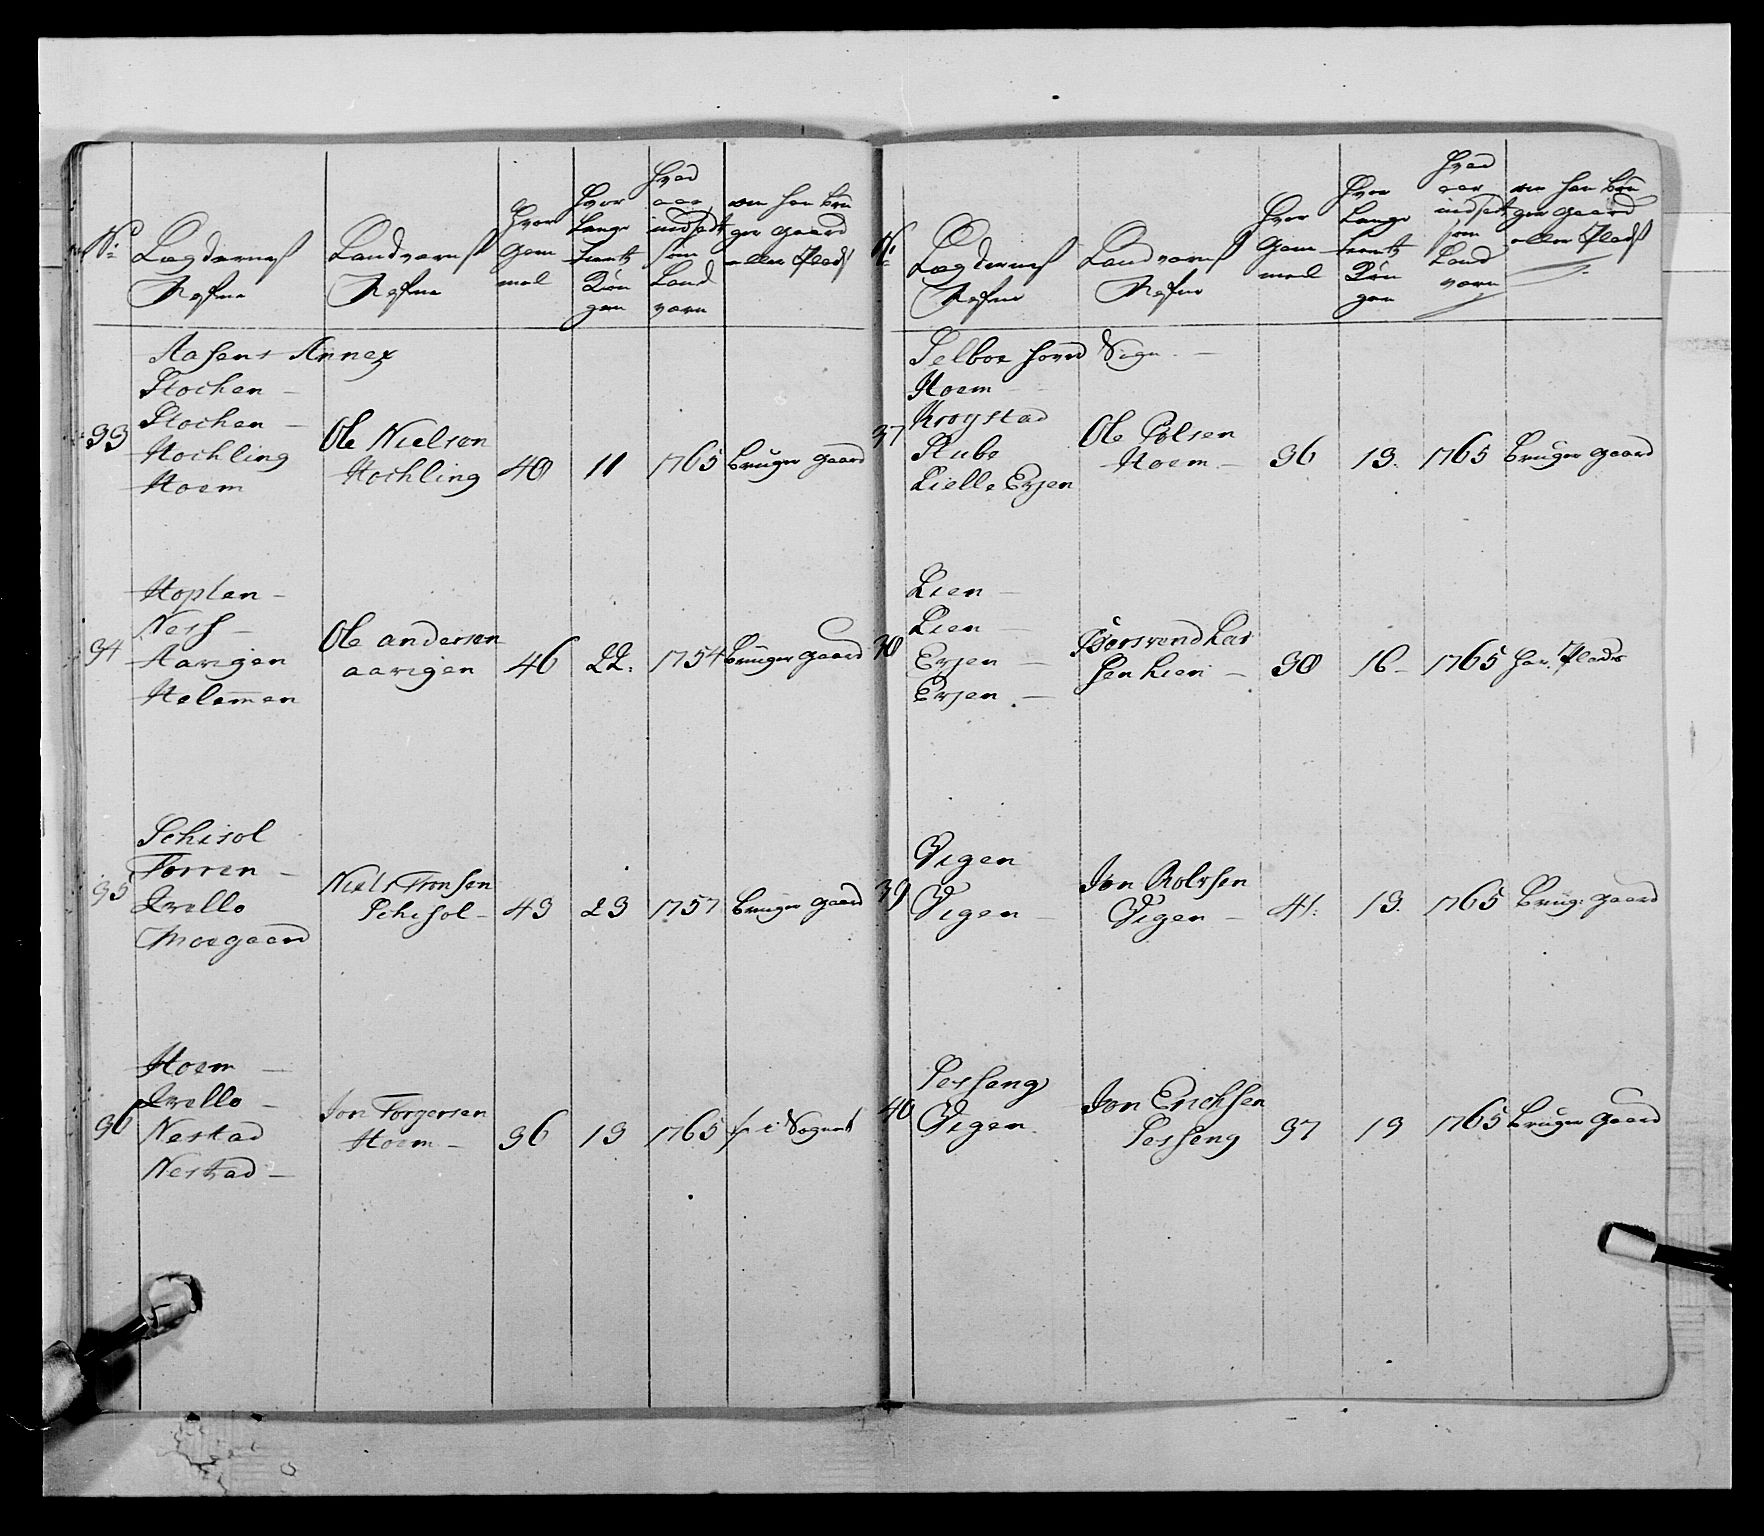 No:
Lægdernes
Nafne
Landværnes
Nafne
Hvor
gam
mel
Hvor
Lange
tient
Kon
gen
Hvad
aar
indsadt
som
Land
værn
om han bru
ger gaard
eller Plads
Aasens Annex
33
Stochen –
Stochen –
Hochling
Hoem
Ole Nielsen
Hochling
40
11
1765
bruger gaard
34
Hoplan –
Ness –
Aarigen
Halemen
Ole andersen
aarigen
46
22.
1754
bruger gaard
35
Schisol
Forren –
Qvello
Moegaard
Niels Tronsen
Schisol –
43
23
1757
bruger gaard
36
Hoem –
Qvello –
Nestad
Nestad –
Jon Torgersen
Hoem –
36
13
1765
i Sognet
No:
Lægdernes
Nafne
Landværnes
Nafne
Hvor
gam
mel
Hvor
Lange
tient
Kon
gen
Hvad
aar
indsadt
som
Land
værn
om han bru
ger gaard
eller Plads
Selboe hoved Sogn –
37
Hoem –
Krogstad
Stube
Lielle Evjen
Ole Polsen
Hoem –
36
13.
1765
bruger gaard
38
Lien –
Lien –
Evjen –
Evjen –
Bersvend Lar
sen Lien –
30
16 –
1765
har Plads
39
Vigen
Vigen –
Jon Rolvsen
Vigen –
41.
13.
1765
Brug: gaard
40
Sesseng
Vigen
Jon Erichsen
Sesseng
37
13
1765
bruger gaard